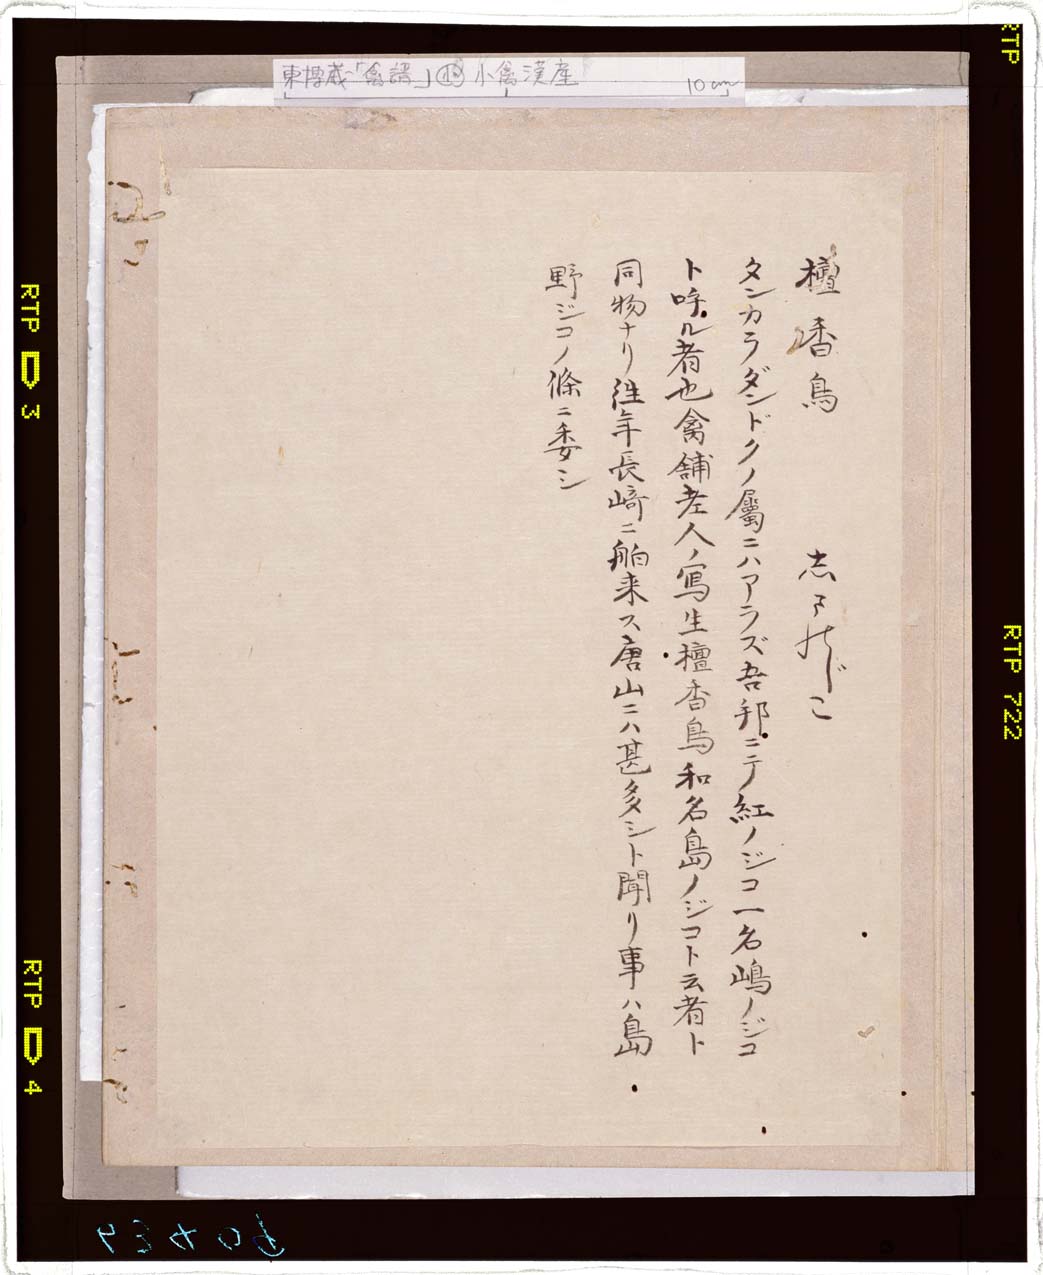 東博蔵「禽譜」⑲ 小禽漢産
10cm
檀香鳥 志まのじこ
タンカラダンドクノ屬ニハアラズ吾邦ニテ紅ノジコ一名嶋ノジコ
ト呼ル者也禽舗老人ノ寫生檀香鳥和名島ノジコト云者ト
同物ナリ往年長﨑ニ舶来ス唐山ニハ甚多シト聞リ事ハ島
野ジコノ條ニ委シ
RTP
RTP 3
RTP 722
RTP 4